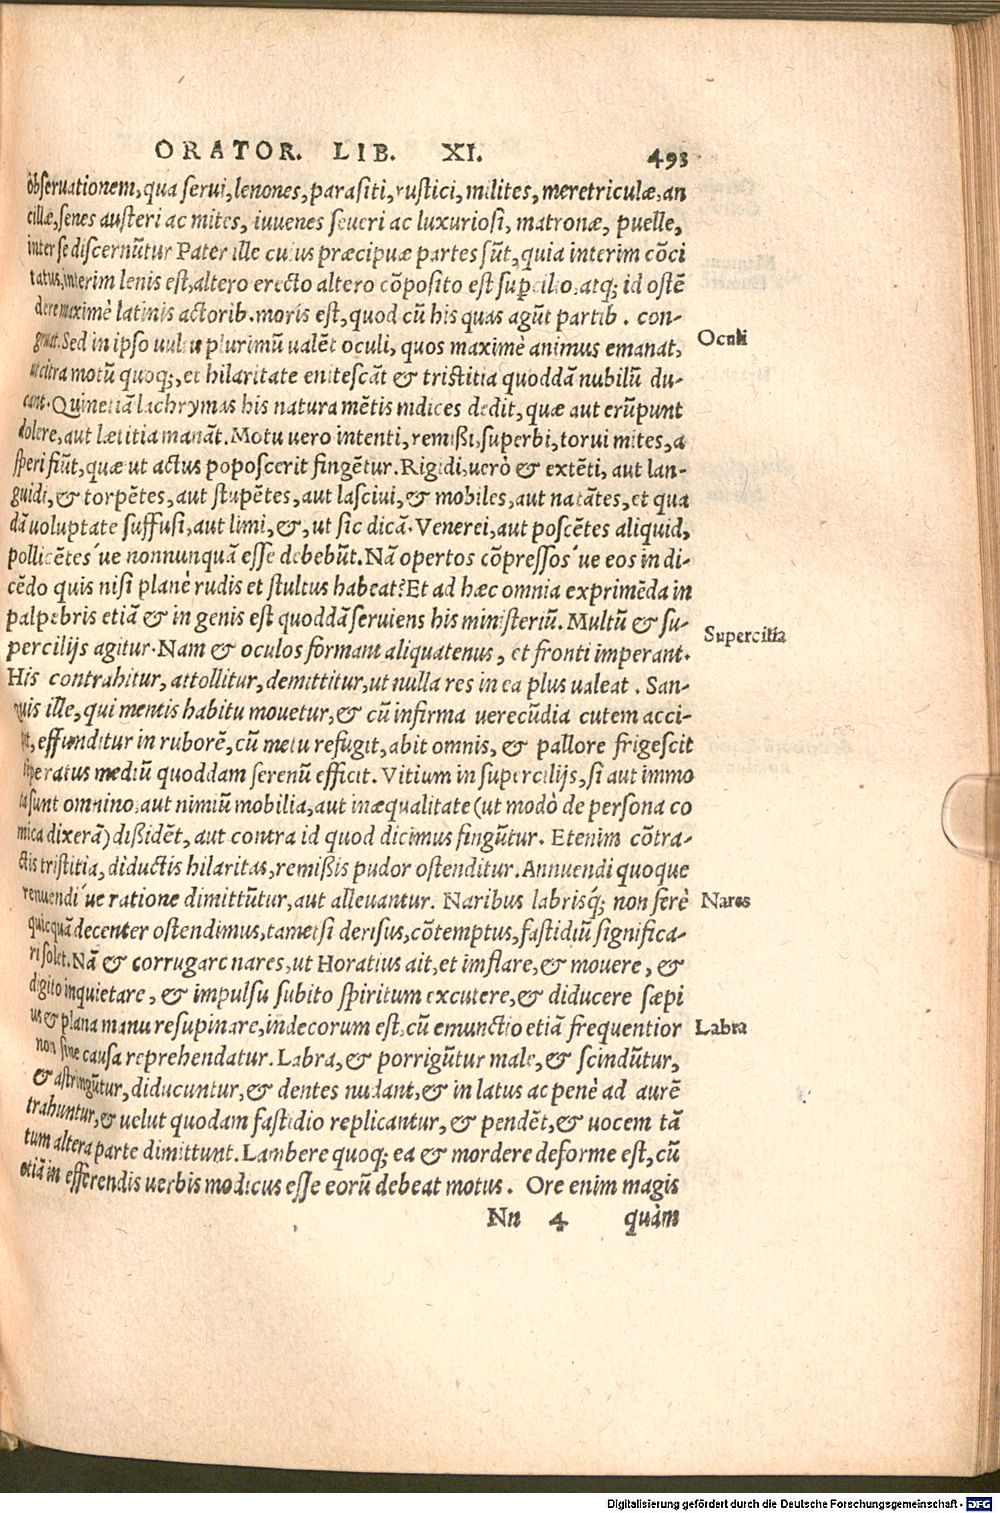 ORATOR. LIB. XI. 493
obseruationem, qua serui, lenones, parasiti, rustici, milites, meretriculæ, an
cillæ, senes austeri ac mites, iuuenes seueri ac luxuriosi, matronæ, puelle,
inter se discernũtur Pater ille cuius præcipuæ partes sũt, quia interim cõci
tatus, interim lenis est, altero erecto altero cõposito est supercilio, atq; id ostẽ
dere maximè latinis actorib. moris est, quod cũ his quas agũt partib. con-
gruat. Sed in ipso uultu plurimũ ualẽt oculi, quos maximè animus emanat,
Oculi
ut citra motũ quoq;, et hilaritate enitescãt & tristitia quoddã nubilũ du-
cant. Quinetiã lachrymas his natura mẽtis indices dedit, quæ aut erũpunt
dolere, aut lætitia manãt. Motu uero intenti, remißi, superbi, torui mites, a
speri fiũt, quæ ut actus poposcerit fingẽtur. Rigidi, uerò & extẽti, aut lan-
guidi, & torpẽtes, aut stupẽtes, aut lasciui, & mobiles, aut natãtes, et qua
dã uoluptate suffusi, aut limi, &, ut sic dicã. Venerei, aut poscẽtes aliquid,
pollicẽtes´ue nonnunquã esse debebũt. Nã opertos cõpressos´ue eos in di-
cẽdo quis nisi planè rudis et stultus habeat? Et ad hæc omnia exprimẽda in
palpebris etiã & in genis est quoddã seruiens his ministeriũ. Multũ & su-
Supercilia
percilijs agitur. Nam & oculos formant aliquatenus, et fronti imperant.
His contrahitur, attollitur, demittitur, ut nulla res in ea plus ualeat. San-
quis ille, qui mentis habitu mouetur, & cũ infirma uerecũdia cutem acci-
pit, effunditur in ruborẽ, cũ metu refugit, abit omnis, & pallore frigescit
tẽperatus mediũ quoddam serenũ efficit. Vitium in supercilijs, si aut immo
ta sunt omnino, aut nimiũ mobilia, aut inæqualitate (ut modò de persona co
mica dixerã) dißidẽt, aut contra id quod dicimus fingũtur. Etenim cõtra-
ctis tristitia, diductis hilaritas, remißis pudor ostenditur. Annuendi quoque
renuendi´ue ratione dimittũtur, aut alleuantur. Naribus labrisq́; non ferè
Nares
quicquã decenter ostendimus, tametsi derisus, cõtemptus, fastidiũ significa-
ri solet. Nã & corrugare nares, ut Horatius ait, et inflare, & mouere, &
digito inquietare, & impulsu subito spiritum excutere, & diducere sæpi
us & plana manu resupinare, indecorum est, cũ emunctio etiã frequentior
Labra
non sine causa reprehendatur. Labra, & porrigũtur male, & scindũtur,
& astringũtur, diducuntur, & dentes nudant, & in latus ac penè ad aurẽ
trahuntur, & uelut quodam fastidio replicantur, & pendẽt, & uocem tã
tum altera parte dimittunt. Lambere quoq; ea & mordere deforme est, cũ
etiã in efferendis uerbis modicus esse eorũ debeat motus. Ore enim magis
Nn 4 quàm
Digitalisierung gefördert durch die Deutsche Forschungsgemeinschaft - DFG